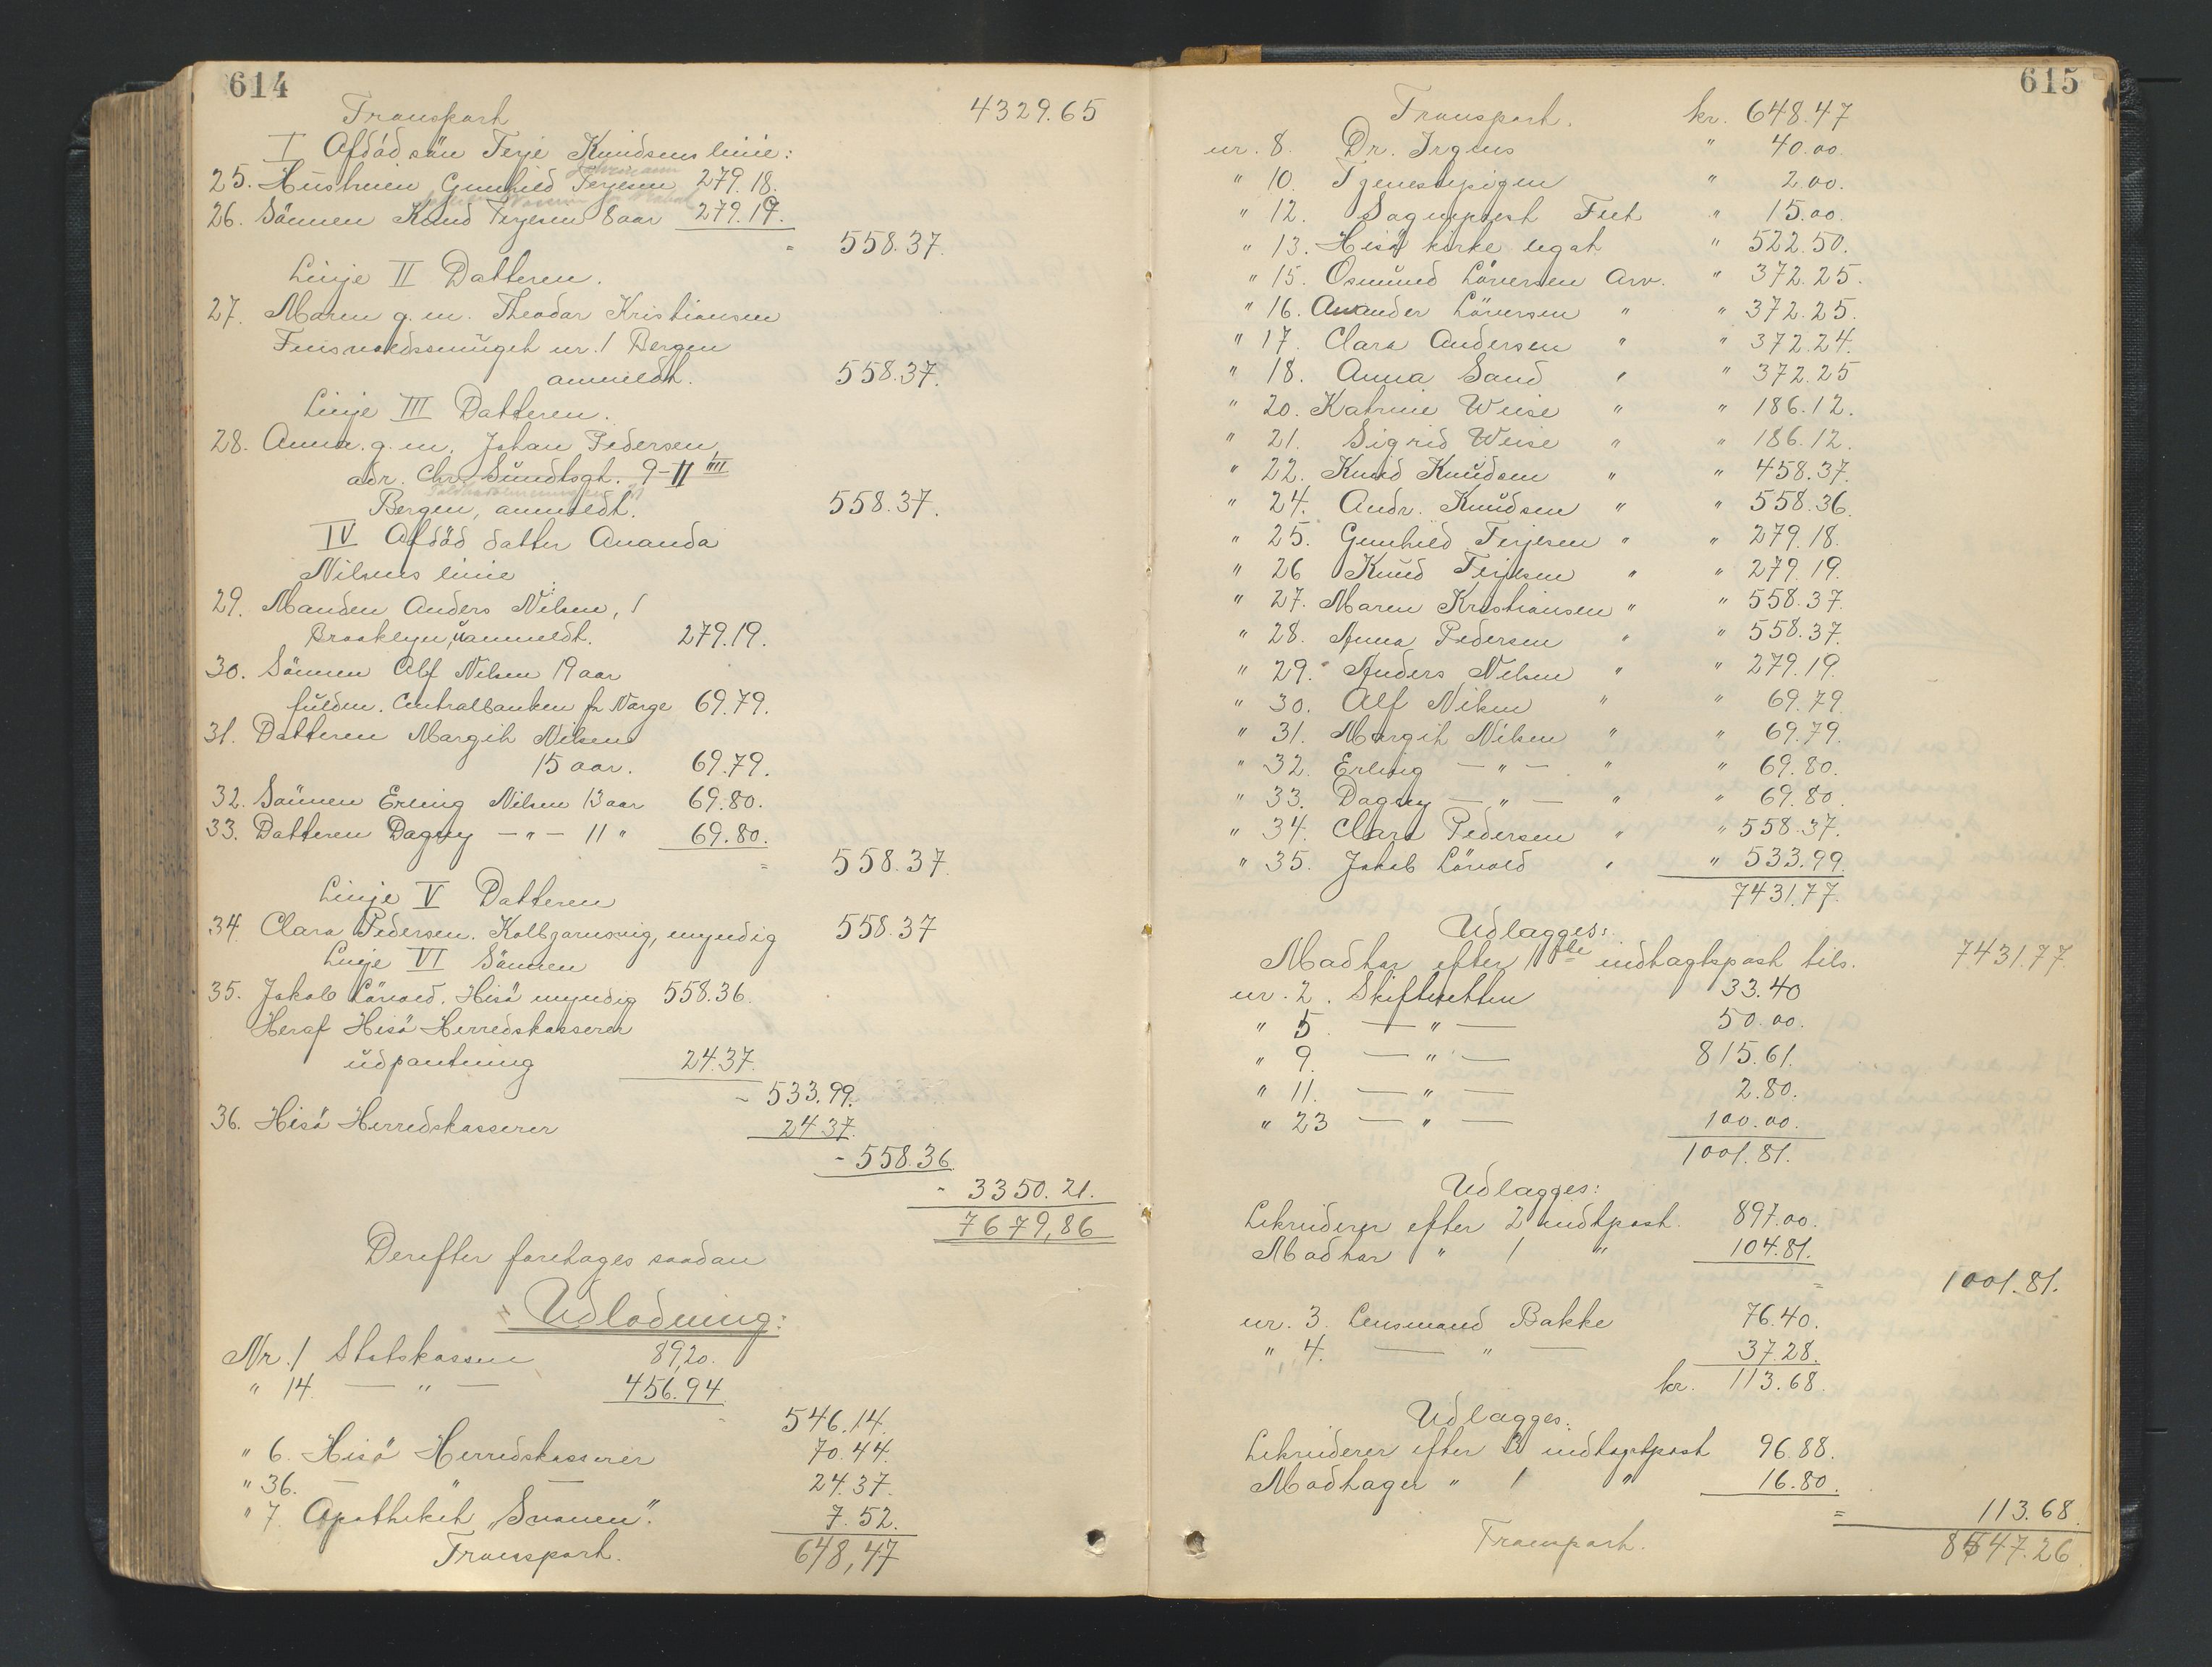 614
Transport 4329.65
I Afdöd sön Terje Knudsens linie:
25. Hustruen Gunhild Terjesen 279.18.
26. Sönnen Knud Terjesen 8 aar 279.19.
= 558.37.
Linje II Datteren.
27. Maren g.m. Theodor Kristiansen
nr. 1 Bergen
anmeldt. 558.37.
Linje III Datteren.
28. Anna g.m. Johan Pedersen
adr. Chr. Sundtsgt. 9-II
Bergen, anmeldt. 558.37.
IV Afdöd datter Ananda
Nilsens linie:
29. Manden Anders Nilsen,
Brooklyn, uanmeldt. 279.19.
30. Sönnen Alf Nilsen 19 aar
fuldm. Centralbanken for Norge 69.79.
31. Datteren Margit Nilsen
15 aar. 69.79.
32. Sönnen Erling Nilsen 13 aar 69.80.
33. Datteren Dagny — " — 11 " 69.80.
= 558.37
Linje V Datteren
34. Clara Pedersen. Kolbjørnsvig, myndig 558.37
Linje VI Sönnen
35. Jakob Lövold. Hisö myndig 558.36.
Heraf Hisö Herredskasserer
udpantning 24.37.
- 533.99.
36. Hisö Herredskasserer 24.37.
- 558.36
- 3350.21.
7679,86
Derefter foretages saadan
Udlodning:
Nr. 1 Statskassen 89,20.
" 14. — " — 456.94
546.14.
" 6. Hisö Herredskasserer 70.44.
" 36. — " — 24.37.
" 7 Apotheket „Svanen". 7.52.
Transport. 648,47
615
Transport. kr. 648.47
nr. 8. Dr. Irgens " 40.00.
" 10. Tjenestepigen " 2.00.
" 12. Sogneprest Feet " 15.00.
" 13. Hisö kirke legat " 522.50.
" 15. Osmund Löversen Arv. " 372.25.
" 16. Anander Löversen " " 372.25.
" 17. Clara Andersen " " 372.24.
" 18. Anna Sand " " 372.25
" 20. Katrine Weise " " 186.12.
" 21. Sigrid Weise " " 186.12.
" 22. Knud Knudsen " " 458.37.
" 24. Andr. Knudsen " " 558.36.
" 25. Gunhild Terjesen " " 279.18.
" 26 Knud Terjesen " " 279.19.
" 27. Maren Kristiansen " " 558.37.
" 28. Anna Pedersen " " 558.37.
" 29. Anders Nilsen " " 279.19.
" 30. Alf Nilsen " " 69.79.
" 31. Margit Nilsen " " 69.79.
" 32. Erling — " — " " 69.80.
" 33. Dagny — " — " " 69.80.
" 34. Clara Pedersen " " 558.37.
" 35. Jakob Lövold " " 533.99.
7431.77.
Udlægges:
Modtar efter 1ste indtægtspost tils. 7431.77
nr. 2. Skifteretten 33.40
" 5 — " — 50.00.
" 9. — " — 815.61.
" 11. — " — 2.80.
" 23 — " — 100.00.
1001.81.
Udlægges:
efter 2 indtpost. 897.00.
Modtar " 1 " 104.81.
= 1001.81.
nr. 3. Lensmand Bakke 76.40.
" 4. — " — 37.28.
kr. 113.68.
Udlægges:
efter indtægtpost 96.88.
Modtager " 1 " 16.80.
= 113.68.
Transport. 8547.26